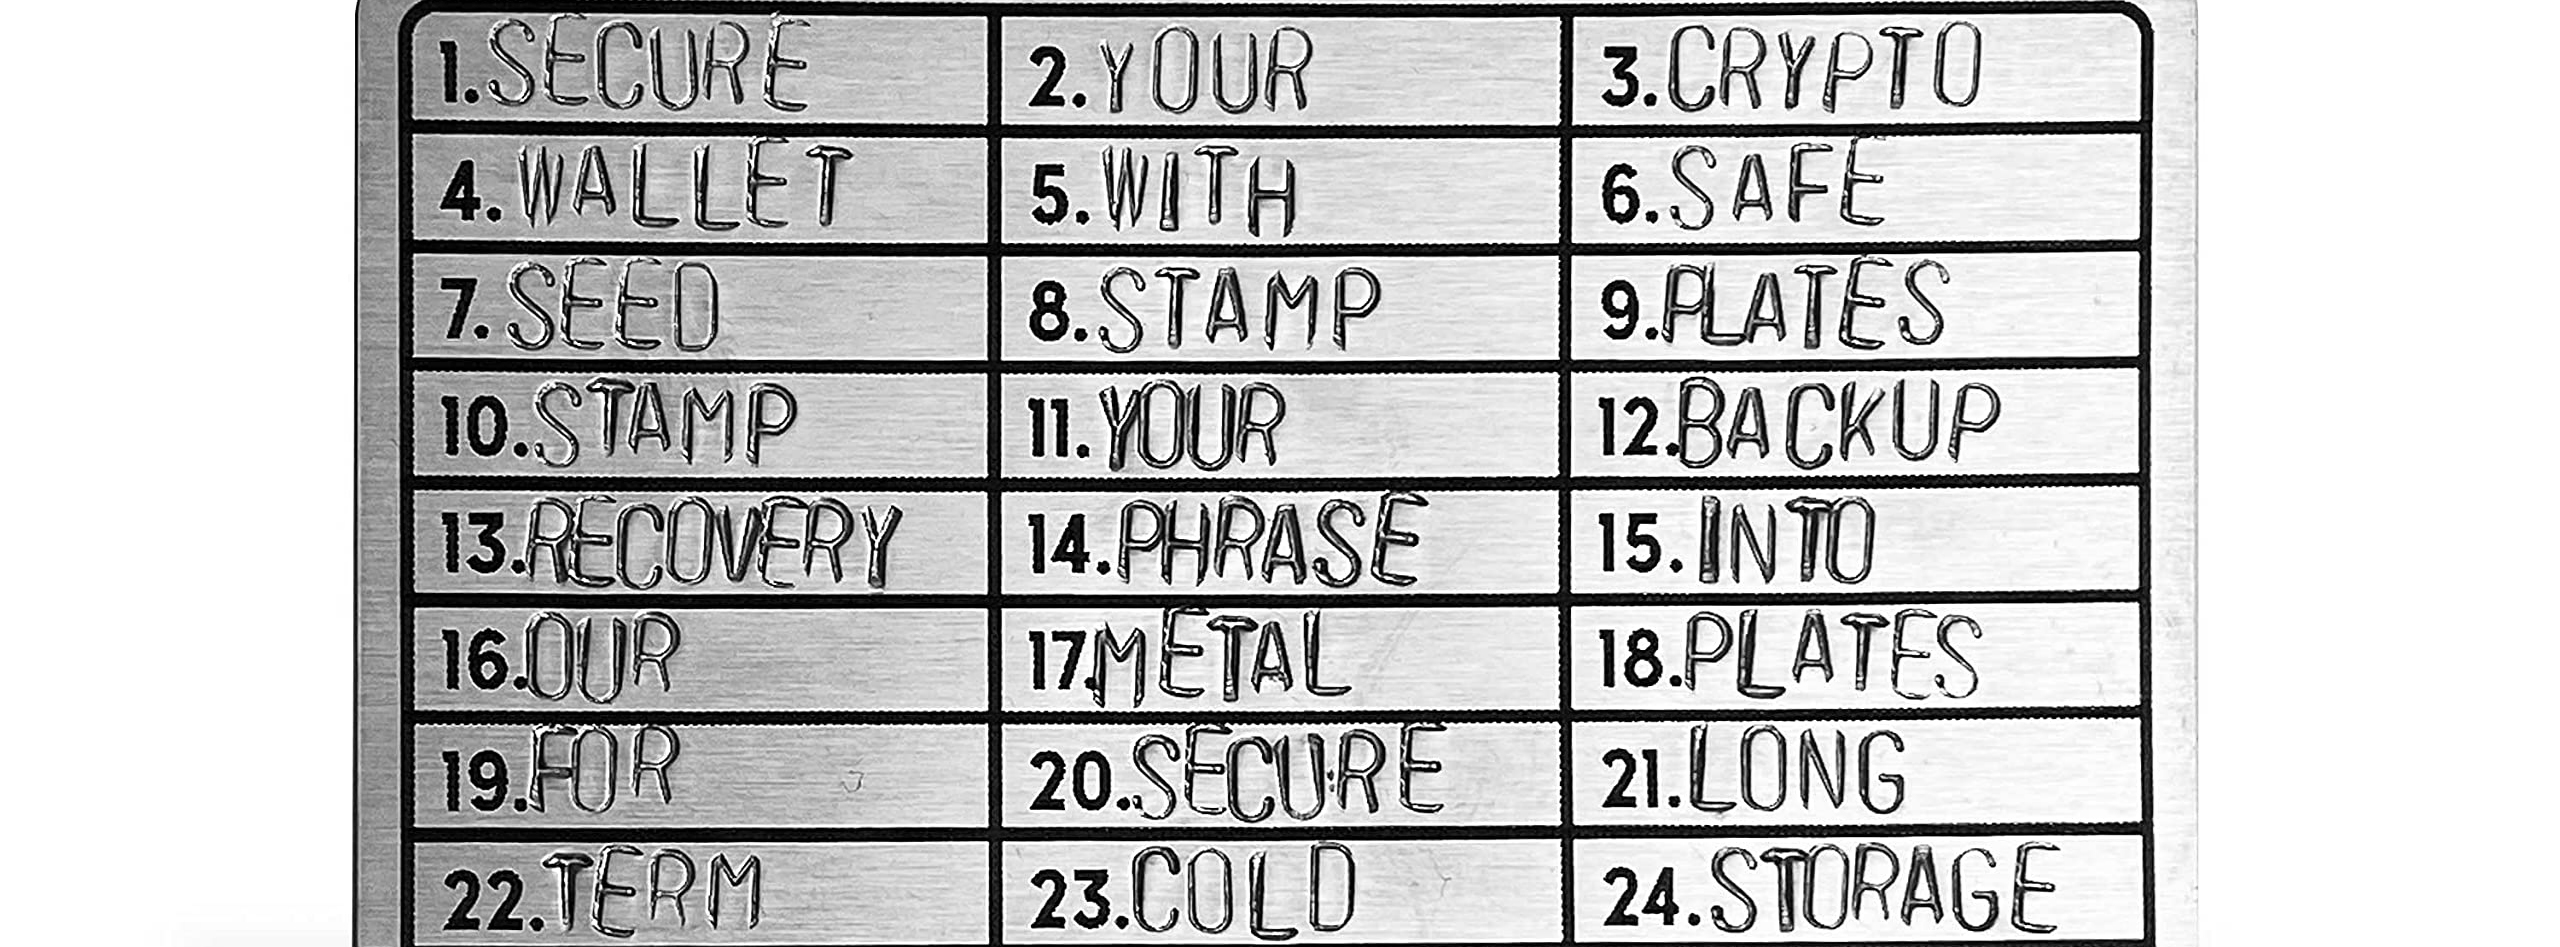 1. SECURE 2. YOUR 3. CRYPTO
4. WALLET 5. WITH 6. SAFE
7. SEED 8. STAMP 9. PLATES
10. STAMP 11. YOUR 12. BACKUP
13. RECOVERY 14. PHRASE 15. INTO
16. OUR 17. METAL 18. PLATES
19. FOR 20. SECURE 21. LONG
22. TERM 23. COLD 24. STORAGE